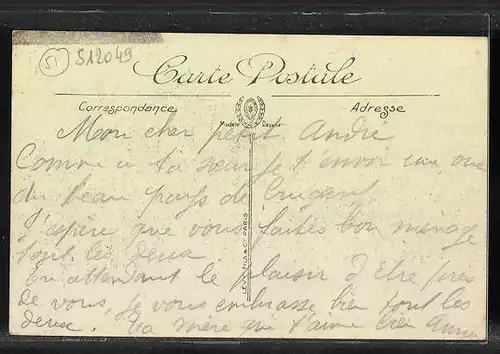 51
S12049
Carte Postale
Correspondance
Adresse
Modèle Déposé
Mon cher petit André
Comme a ta soeur je t'envoi une vue
du beau pays de
J'espère que vous faites bon ménage
tout les deux
En attendant le plaisir d'être près
de vous, je vous embrasse bien tout les
deux. Ta mère qui t'aime bien
LEVY FILS & Cie PARIS